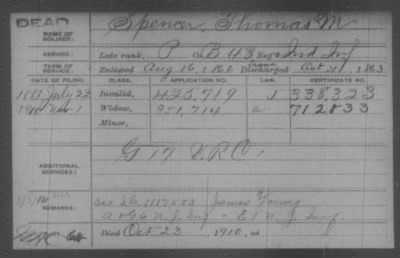 DEAD
NAME OF SOLDIER: Spencer, Thomas M
SERVICE: Late rank, P B 43 Reg't Ind Inf
TERM OF SERVICE: Enlisted Aug 16, 1862 Discharged Oct 21, 1863
DATE OF FILING. CLASS. APPLICATION NO. LAW. CERTIFICATE NO.
1881 July 22 Invalid, 425,719 338,323
1910 Nov 1 Widow, 951,714 a 712833
Minor,
G 17 V.R.C.
ADDITIONAL SERVICES:
REMARKS: 1117553 James Young
N.J. Inf - E 1 N.J. Inf
Died Oct 23, 1910, at